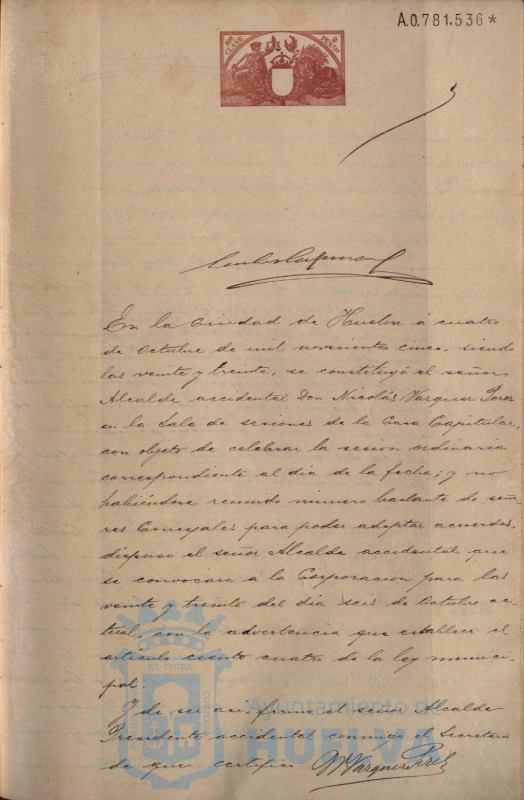 A.0.781,536 *
10ª CLASE
2 PESETAS
En la Ciudad de Huelva á cuatro
de Octubre de mil novecientos cinco, siendo
las veinte y treinta, se constituyó el señor
Alcalde accidental Don Nicolás Vazquez Perez
en la Sala de sesiones de la Casa Capitular,
con objeto de celebrar la sesion ordinaria
correspondiente al dia de la fecha; y no
habiéndose reunido número bastante de seño
res Concejales para poder adoptar acuerdos,
dispuso el señor Alcalde accidental que
se convocara a la Corporacion para las
veinte y treinta del dia seis de Octubre ac-
tual, con la advertencia que establece el
artículo ciento cuatro de la ley munici-
pal.
Y de ser asi, firma el señor Alcalde
Presidente accidental conmigo el Secretario
de que certifico. N Vazquez Perez
Ayuntamiento de
HUELVA